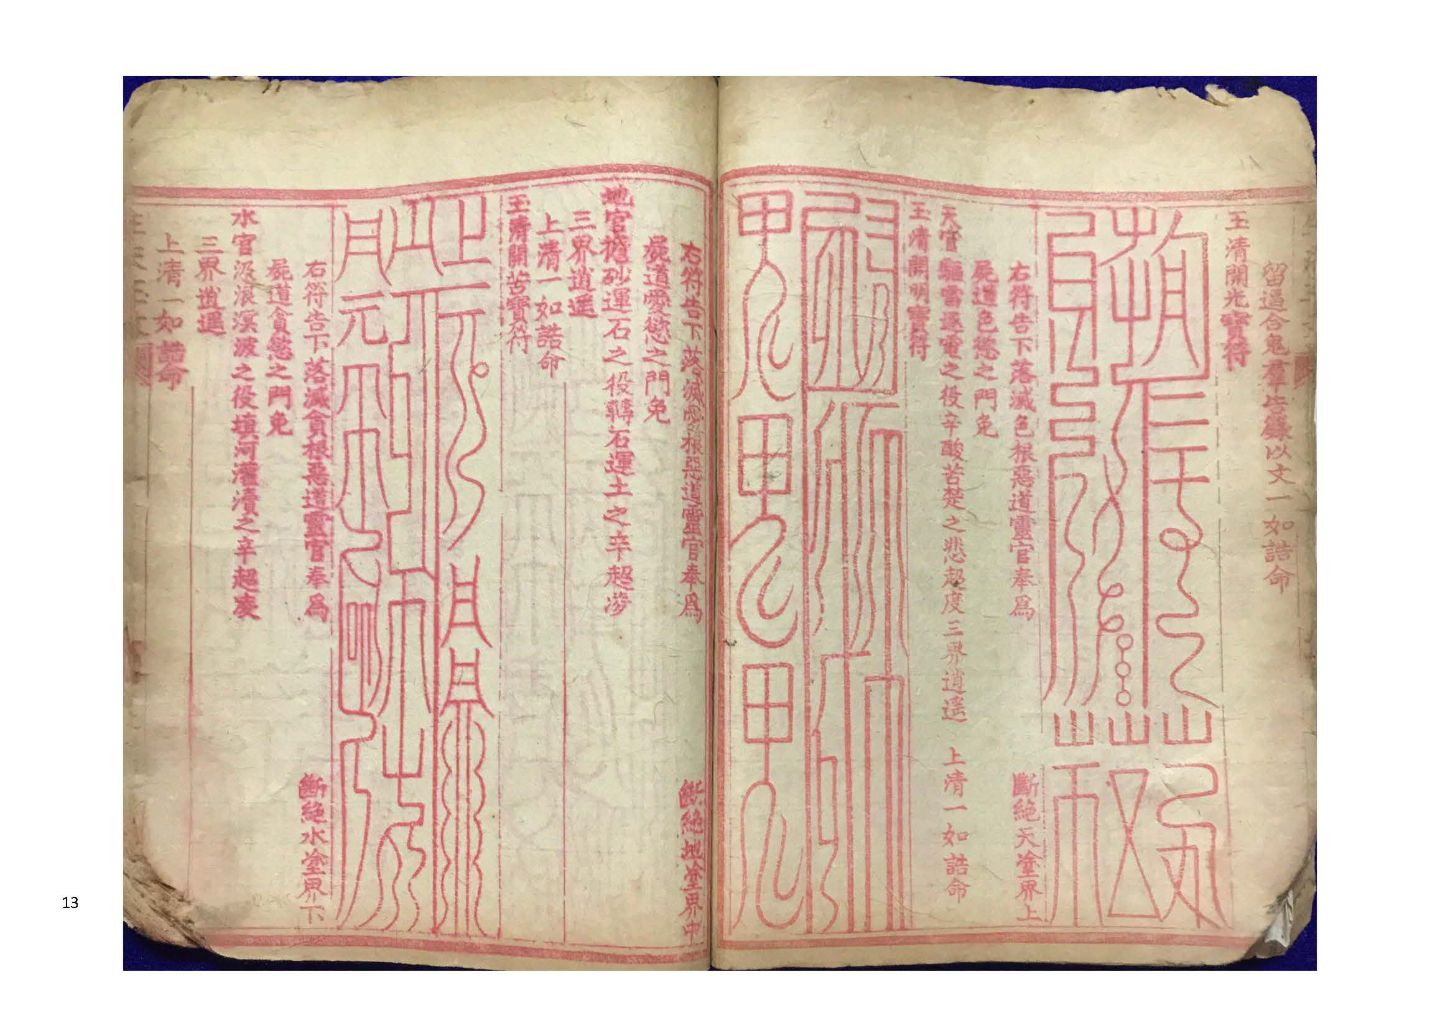 留逼合鬼羣皆錄以文一如誥命
玉清開光寶符
右符告下落滅色根惡道靈官奉爲 斷絕天塗界上
屍道色慾之門免
天官驅雷逐電之役辛酸苦楚之悲超度三界逍遥 上清一如誥命
玉清開明寶符
右符告下落滅 根惡道靈官奉爲 斷絕地塗界中
屍道愛慾之門免
地官 砂運石之役轉石運土之辛超
三界逍遥
上清一如誥命
玉清開苦寶符
右符告下落滅貪根惡道靈官奉爲 斷絕水塗界下
屍道貪慾之門免
水官汲浪溟波之役填河灌瀆之辛超
三界逍遥
上清一如誥命
13